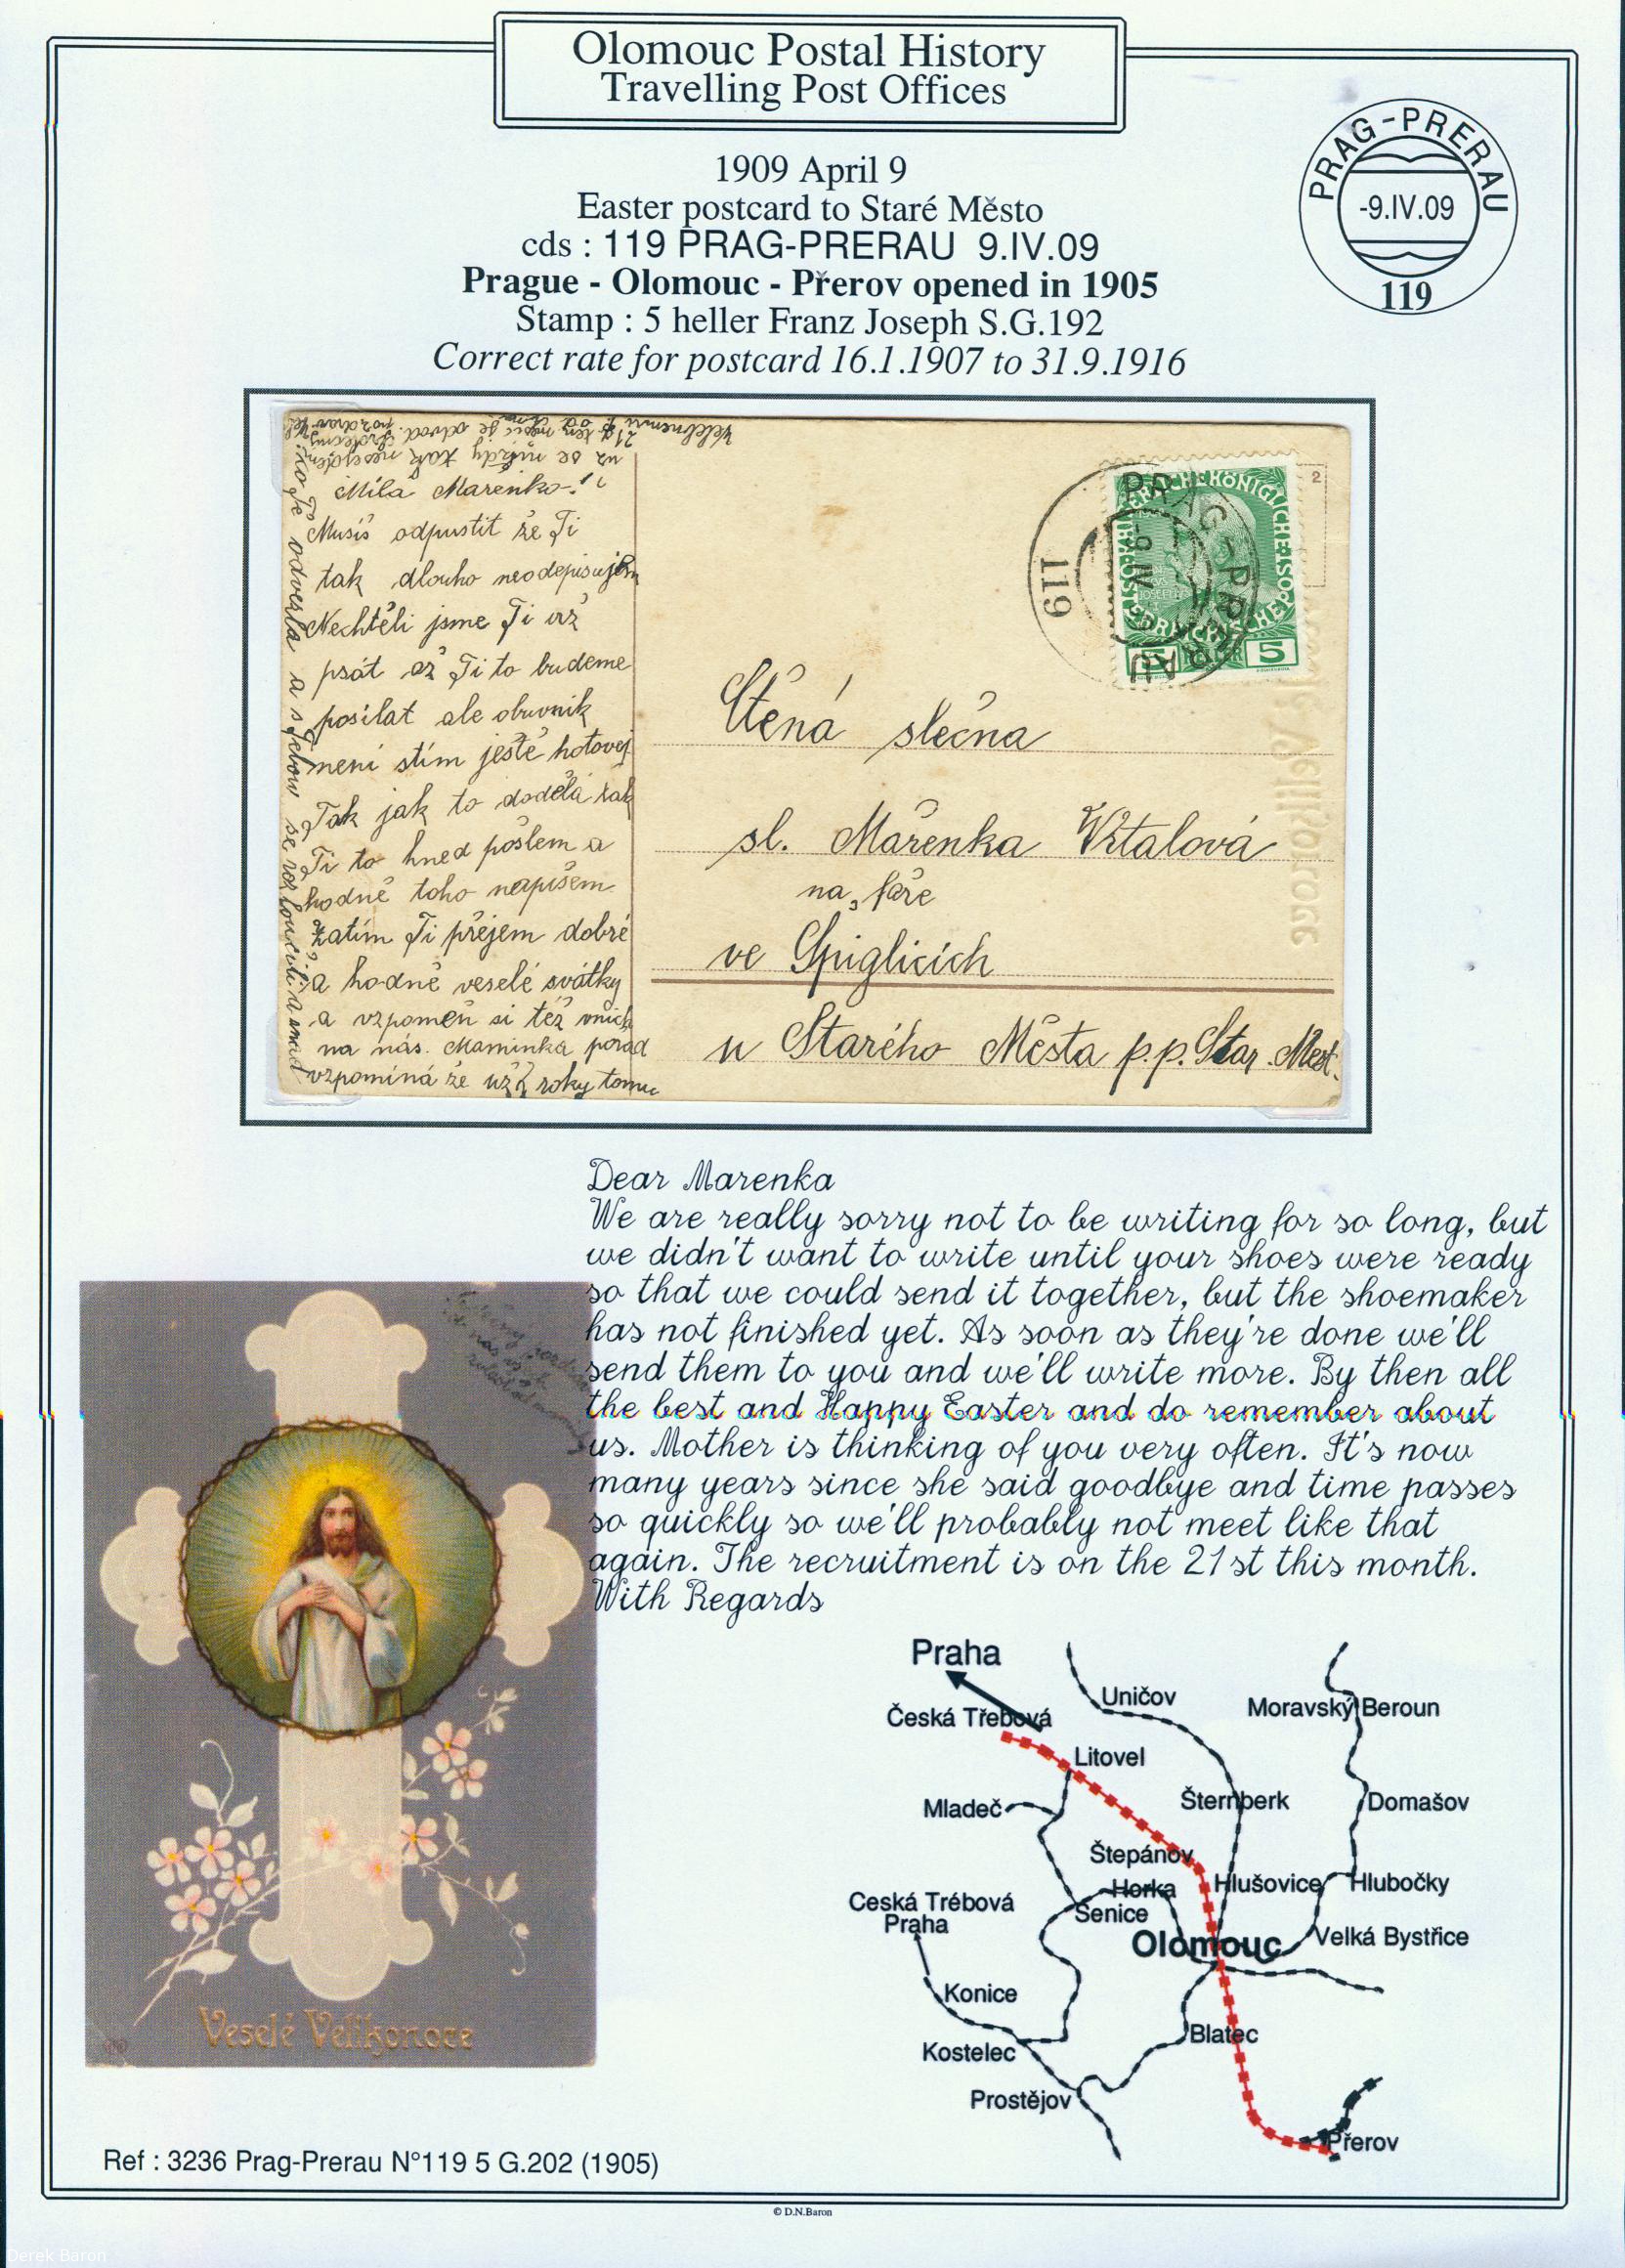 Olomouc Postal History
Travelling Post Offices
1909 April 9
Easter postcard to Staré Město
cds : 119 PRAG-PRERAU 9.IV.09
Prague - Olomouc - Přerov opened in 1905
Stamp : 5 heller Franz Joseph S.G.192
Correct rate for postcard 16.1.1907 to 31.9.1916
PRAG-PRERAU
-9.IV.09
119
už se nikdy tak nesejdeme
Milá Mařenko!
Musíš odpustit že Ti
tak dlouho neodepisujem
Nechtěli jsme Ti už
psát až Ti to budeme
posílat ale obuvník
není stím ještě hotovej
Tak jak to dodělá tak
Ti to hned pošlem a
hodně toho napíšem
Zatím Ti přejem dobré
a hodně veselé svátky
a vzpomeň si též vnich
na nás. Maminka pořád
vzpomíná že už 2 roky tomu
co Tě odvezla a s Tebou se rozloučila a snad
PRAG-PRERAU
9 IV 09
119
2
5
Ctěná slečna
sl. Mařenka Vrtalová
na faře
ve Špiglicích
u Starého Města p.p. Star. Měst.
Dear Marenka
We are really sorry not to be writing for so long, but
we didn't want to write until your shoes were ready
so that we could send it together, but the shoemaker
has not finished yet. As soon as they're done we'll
send them to you and we'll write more. By then all
the best and Happy Easter and do remember about
us. Mother is thinking of you very often. It's now
many years since she said goodbye and time passes
so quickly so we'll probably not meet like that
again. The recruitment is on the 21st this month.
With Regards
Veselé Velikonoce
Praha
Česká Třebová
Uničov
Moravský Beroun
Litovel
Mladeč
Šternberk
Domašov
Štepánov
Horka
Hlušovice
Hlubočky
Ceská Trébová
Praha
Senice
Olomouc
Velká Bystřice
Konice
Blatec
Kostelec
Prostějov
Přerov
Ref : 3236 Prag-Prerau N°119 5 G.202 (1905)
© D.N.Baron
Derek Baron